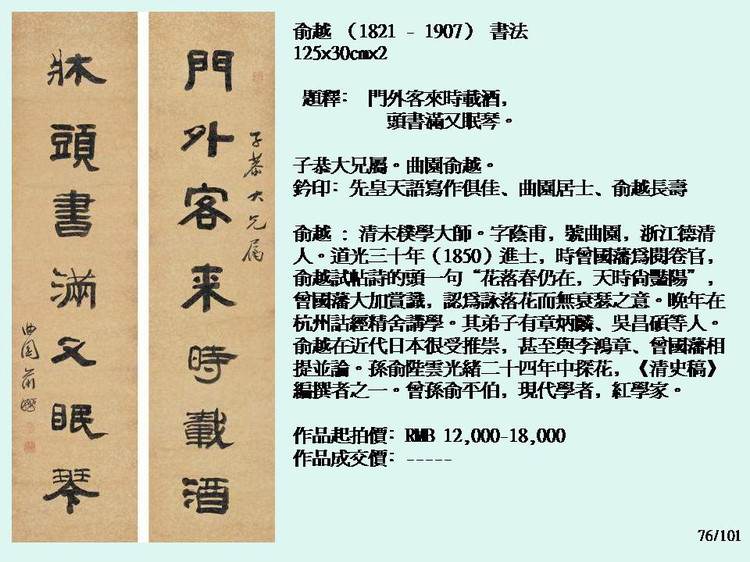 門外客来時載酒
子恭大兄屬
牀頭書滿又眠琴
曲園俞樾
俞越 （1821 - 1907） 書法
125x30cmx2
題釋： 門外客來時載酒，
頭書滿又眠琴。
子恭大兄屬。曲園俞越。
鈐印：先皇天語寫作俱佳、曲園居士、俞越長壽
俞越 ：清末樸學大師。字蔭甫，號曲園，浙江德清
人。道光三十年（1850）進士，時曾國藩爲閱卷官，
俞越試帖詩的頭一句“花落春仍在，天時尙豔陽”，
曾國藩大加賞識，認爲詠落花而無衰瑟之意。晚年在
杭州詁經精舍講學。其弟子有章炳麟、吳昌碩等人。
俞越在近代日本很受推崇，甚至與李鴻章、曾國藩相
提並論。孫俞陛雲光緒二十四年中探花，《清史稿》
編撰者之一。曾孫俞平伯，現代學者，紅學家。
作品起拍價：RMB 12,000-18,000
作品成交價：-----
76/101